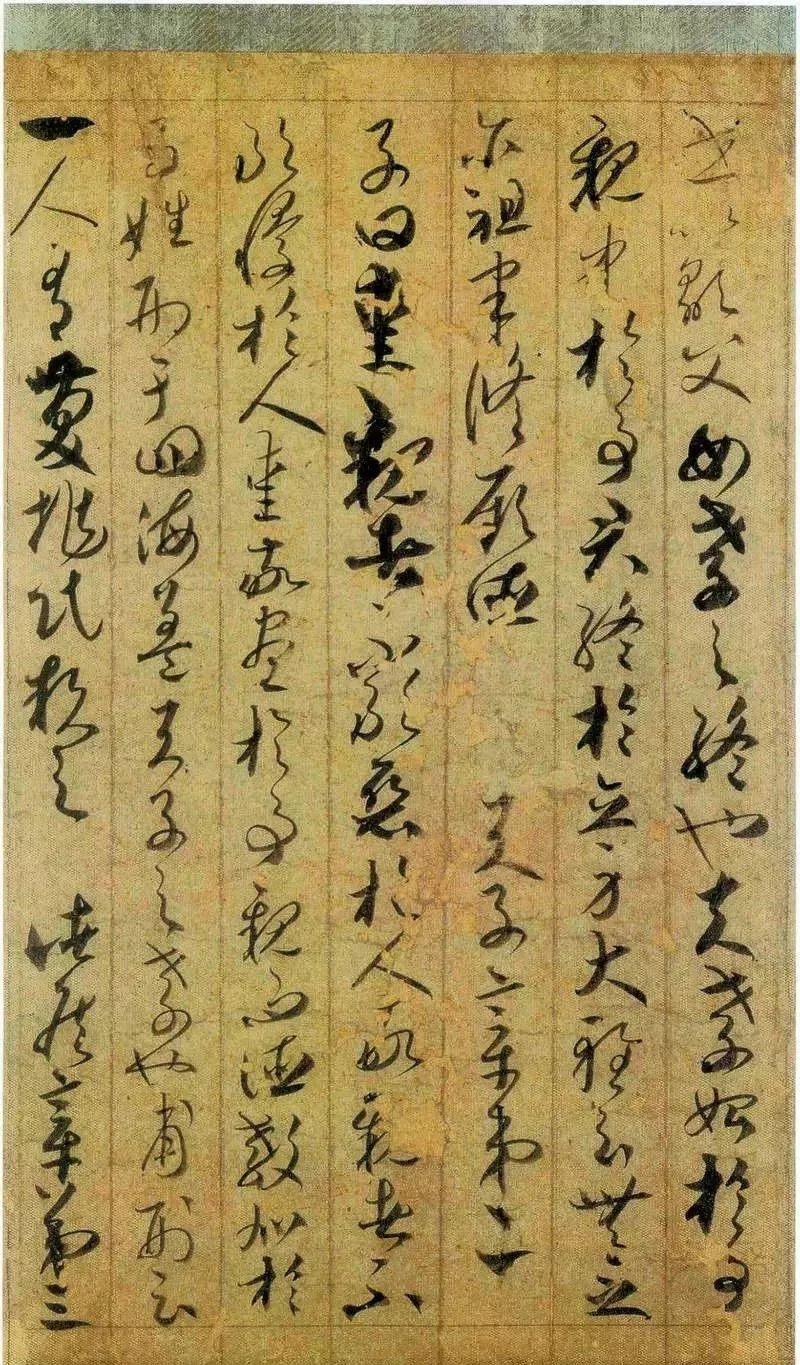 世以顯父母孝之終也夫孝始於事
親中於事君終於立身大雅云無念
尒祖聿脩厥德 天子章第二
子曰愛親者不敢惡於人敬親者不
敢慢於人愛敬盡於事親而德教加於
百姓刑于四海蓋天子之孝也甫刑云
一人有慶兆民賴之 諸侯章第三